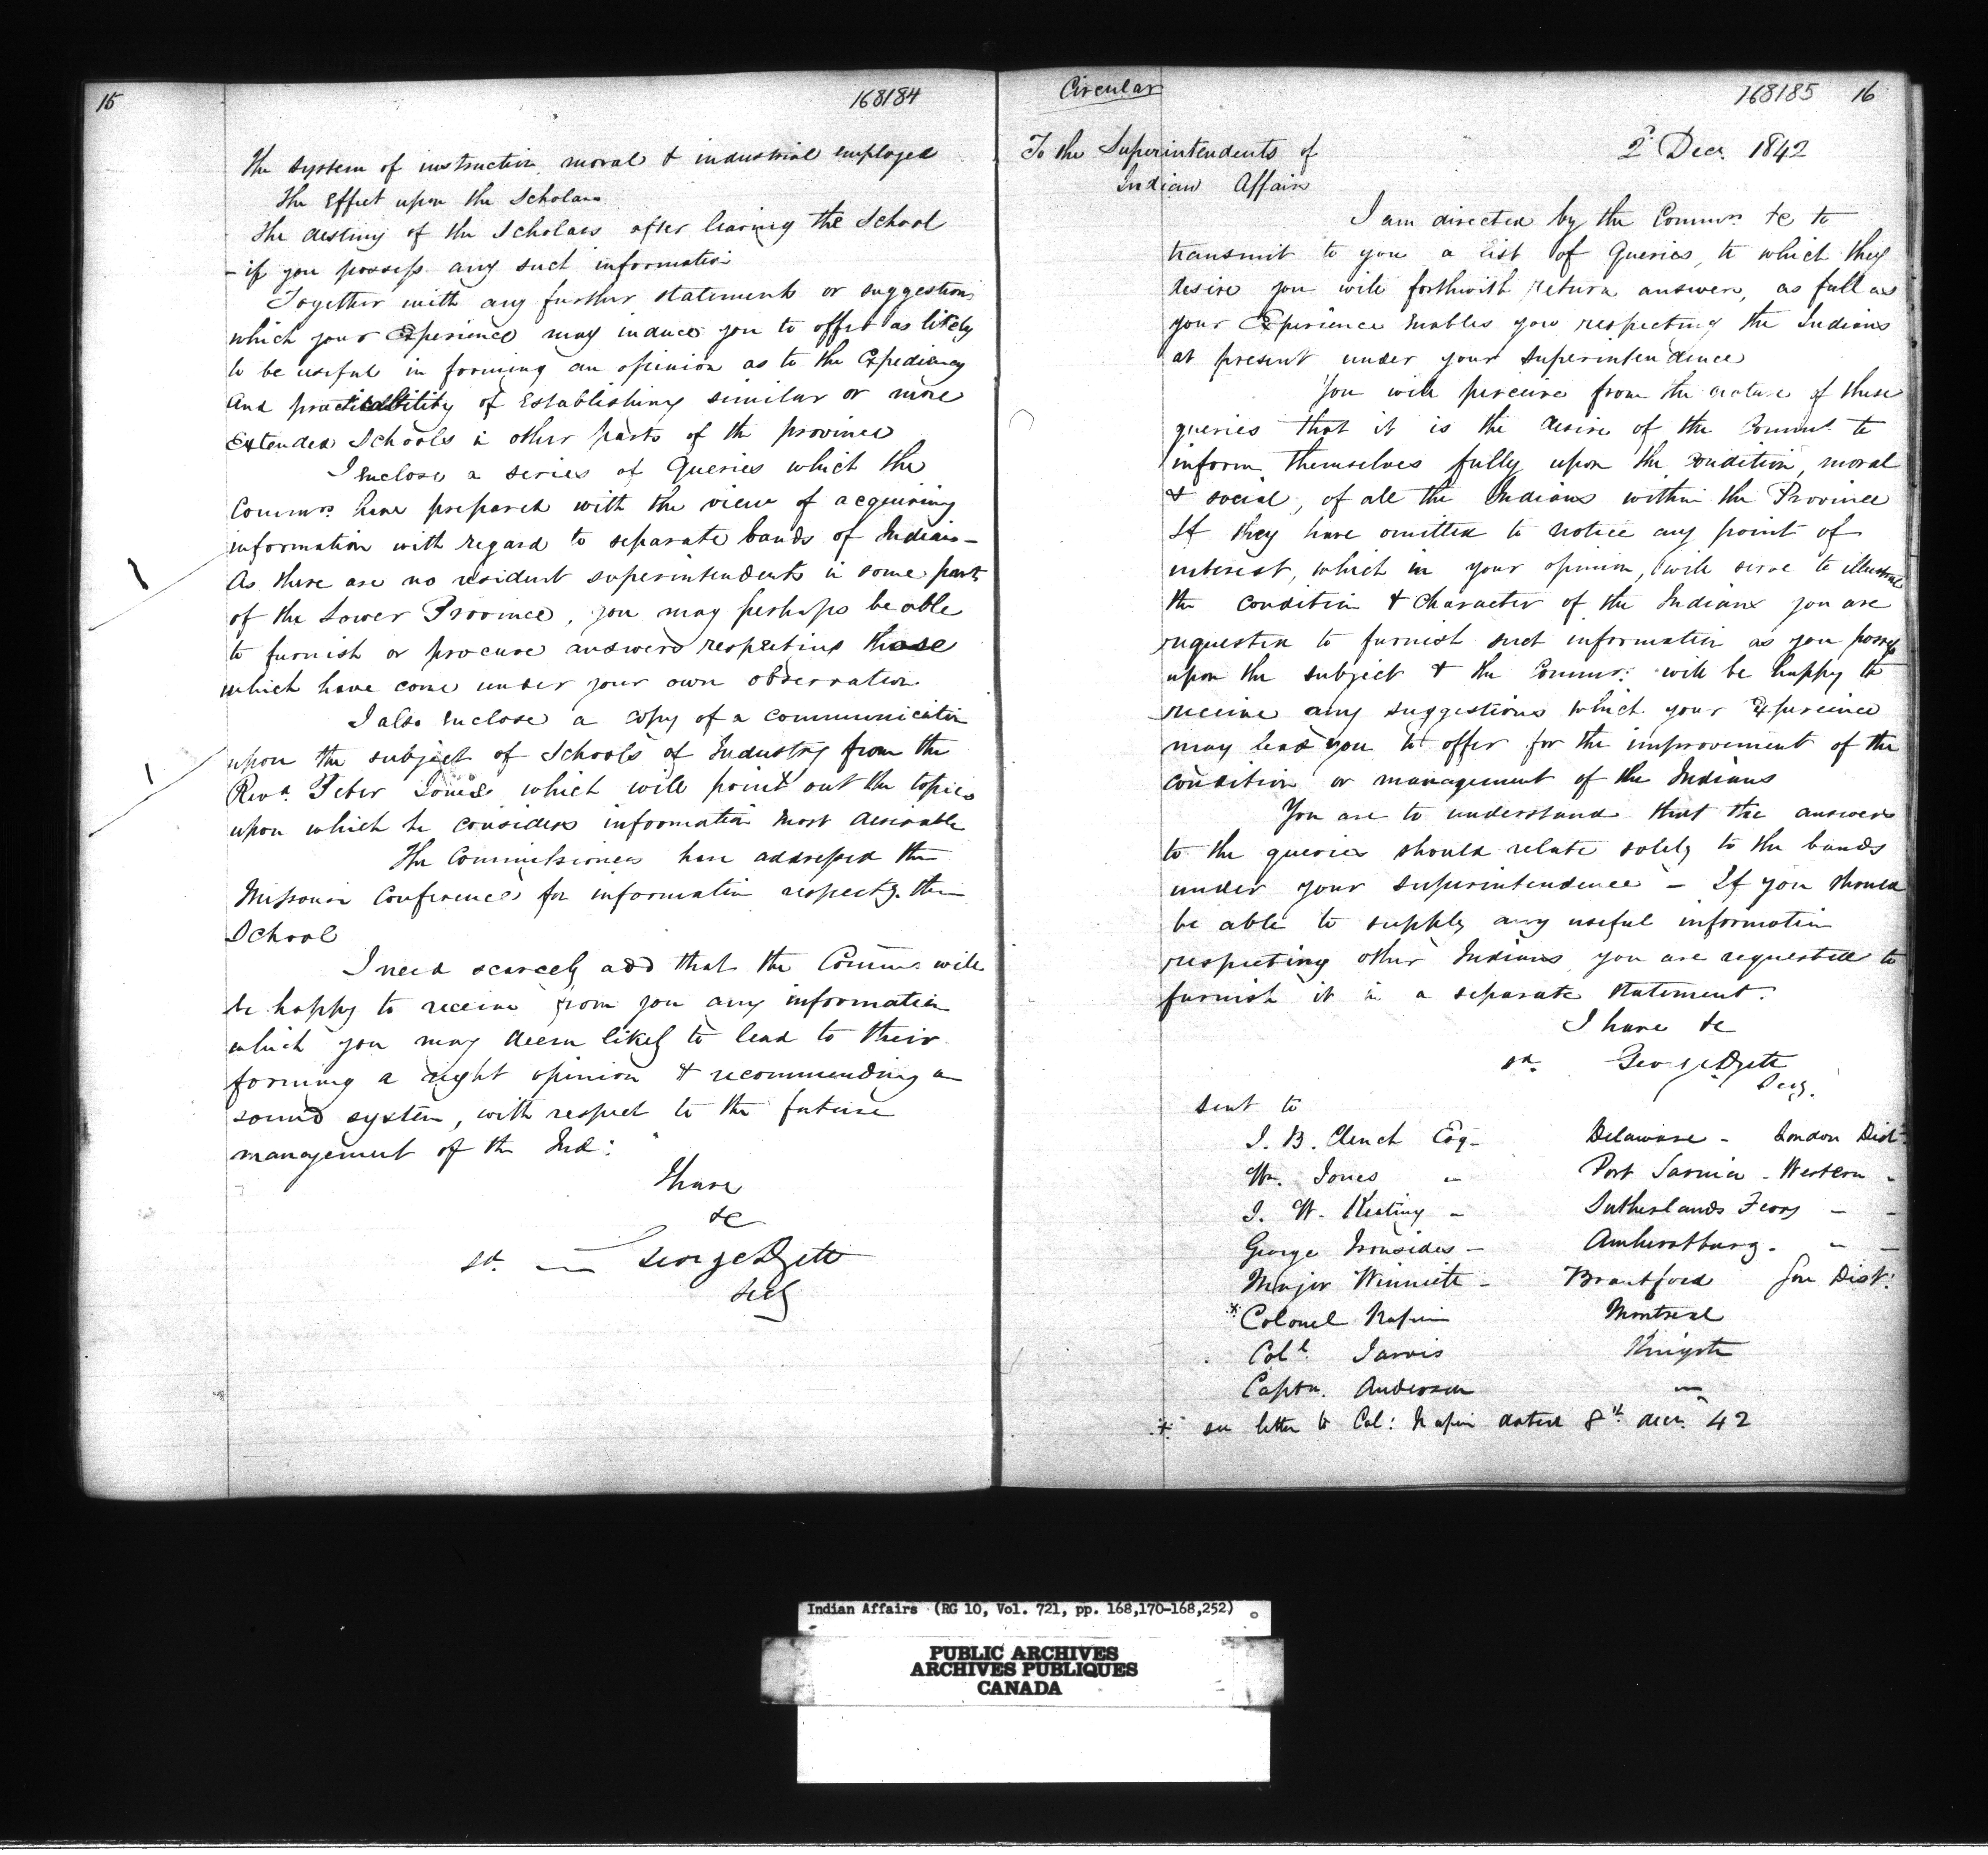 15
168184
the system of instruction, moral & industrial employed
the Effect upon the Scholars
the destiny of the Scholars after leaving the School
- if you possess any such information
Together with any further statements or suggestions
which your Experience may induce you to offer as likely
to be useful in forming an opinion as to the Expediency
and practicability of Establishing similar or more
Extended Schools in other parts of the province
I enclose a series of Queries which the
Commrs. have prepared with the view of acquiring
information with regard to separate bands of Indians -
As there are no resident superintendents in some parts
of the Lower Province, you may perhaps be able
to furnish or procure answers respecting those
which have come under your own observation
I also Enclose a copy of a communication
upon the subject of Schools of Industry from the
Revd. Peter Jones which will point out the topics
upon which he considers information most desirable
The Commissioners have addressed the
Missouri Conference for information respectg. their
School
I need scarcely add that the Commrs. will
be happy to receive from you any information
which you may deem likely to lead to their
forming a right opinion & recommending a
sound system, with respect to the future
management of the Ind:
I have
&c
sd. — George
Secy
Circular
168185 16
To the Superintendents of
Indian Affairs
2d. Decr. 1842
I am directed by the Commrs. &c to
transmit to you a List of Queries, to which they
desire you will forthwith return answers, as full as
your Experience Enables you respecting the Indians
at present under your superintendence
You will perceive from the nature of these
queries that it is the desire of the Commrs. to
inform themselves fully upon the condition, moral
& social, of all the Indians within the Province
If they have omitted to notice any point of
interest, which in your opinion, will serve to illustrate
the condition & character of the Indians you are
requested to furnish such information as you possess
upon the subject & the Commrs: will be happy to
receive any suggestions which your Experience
may lead you to offer for the improvement of the
condition or management of the Indians
You are to understand that the answers
to the queries should relate solely to the bands
under your superintendence - If you should
be able to supply any useful information
respecting other Indians, you are requested to
furnish it in a separate statement.
I have &c
sd. George
Secy.
sent to
J. B. Clench Esq - Delaware - London Dist.
Wm. Jones " Port Sarnia - Western "
J. W. Keating " Sutherlands Ferry " "
George Ironsides - Amherstburg. " "
Major Winniett - Brantford Gore Dist:
* Colonel Napier Montreal
Coll. Jarvis Kingston
Captn. Anderson "
* see letter to Col: Napier dated 8th. decr. 42
Indian Affairs (RG 10, Vol. 721, pp. 168,170-168,252)
PUBLIC ARCHIVES
ARCHIVES PUBLIQUES
CANADA